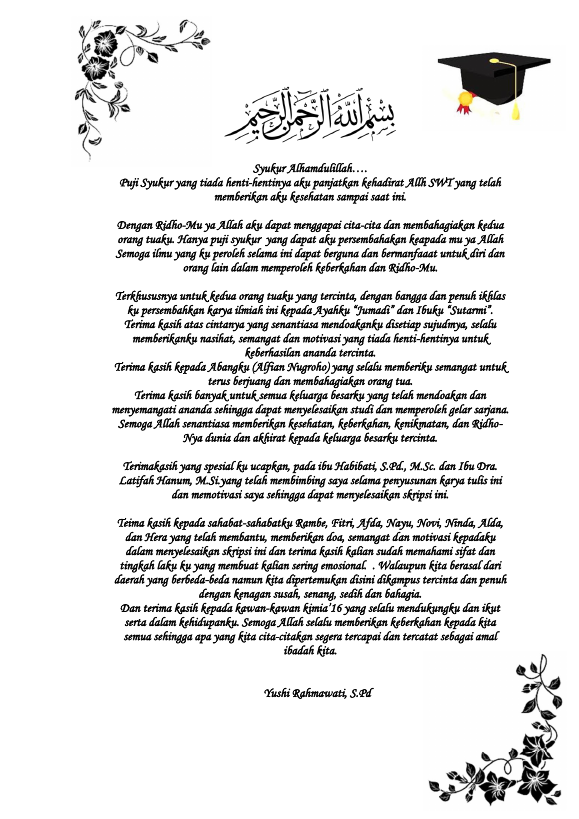 بِسْمِ اللَّهِ الرَّحْمَنِ الرَّحِيمِ
Syukur Alhamdulillah….
Puji Syukur yang tiada henti-hentinya aku panjatkan kehadirat Allh SWT yang telah
memberikan aku kesehatan sampai saat ini.
Dengan Ridho-Mu ya Allah aku dapat menggapai cita-cita dan membahagiakan kedua
orang tuaku. Hanya puji syukur yang dapat aku persembahakan keapada mu ya Allah
Semoga ilmu yang ku peroleh selama ini dapat berguna dan bermanfaaat untuk diri dan
orang lain dalam memperoleh keberkahan dan Ridho-Mu.
Terkhususnya untuk kedua orang tuaku yang tercinta, dengan bangga dan penuh ikhlas
ku persembahkan karya ilmiah ini kepada Ayahku “Jumadi” dan Ibuku “Sutarmi”.
Terima kasih atas cintanya yang senantiasa mendoakanku disetiap sujudmya, selalu
memberikanku nasihat, semangat dan motivasi yang tiada henti-hentinya untuk
keberhasilan ananda tercinta.
Terima kasih kepada Abangku (Alfian Nugroho) yang selalu memberiku semangat untuk
terus berjuang dan membahagiakan orang tua.
Terima kasih banyak untuk semua keluarga besarku yang telah mendoakan dan
menyemangati ananda sehingga dapat menyelesaikan studi dan memperoleh gelar sarjana.
Semoga Allah senantiasa memberikan kesehatan, keberkahan, kenikmatan, dan Ridho-
Nya dunia dan akhirat kepada keluarga besarku tercinta.
Terimakasih yang spesial ku ucapkan, pada ibu Habibati, S.Pd., M.Sc. dan Ibu Dra.
Latifah Hanum, M.Si.yang telah membimbing saya selama penyusunan karya tulis ini
dan memotivasi saya sehingga dapat menyelesaikan skripsi ini.
Teima kasih kepada sahabat-sahabatku Rambe, Fitri, Afda, Nayu, Novi, Ninda, Alda,
dan Hera yang telah membantu, memberikan doa, semangat dan motivasi kepadaku
dalam menyelesaikan skripsi ini dan terima kasih kalian sudah memahami sifat dan
tingkah laku ku yang membuat kalian sering emosional. . Walaupun kita berasal dari
daerah yang berbeda-beda namun kita dipertemukan disini dikampus tercinta dan penuh
dengan kenagan susah, senang, sedih dan bahagia.
Dan terima kasih kepada kawan-kawan kimia’16 yang selalu mendukungku dan ikut
serta dalam kehidupanku. Semoga Allah selalu memberikan keberkahan kepada kita
semua sehingga apa yang kita cita-citakan segera tercapai dan tercatat sebagai amal
ibadah kita.
Yushi Rahmawati, S.Pd